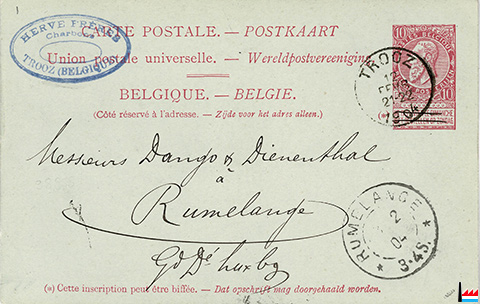 HERVE FRÈRES
Charbons
TROOZ (BELGIQUE)
CARTE POSTALE. — POSTKAART
Union postale universelle. — Wereldpostvereeniging
BELGIQUE. — BELGIE.
(Côté réservé à l'adresse. — Zijde voor het adres alleen.)
10 10
TROOZ
1904
Messieurs Dango & Dienenthal
à
Rumelange
Gd Dé luxbg
RUMELANGE
2
04
3-4S.
(*) Cette inscription peut être biffée. — Dat opschrift mag doorgehaald worden.